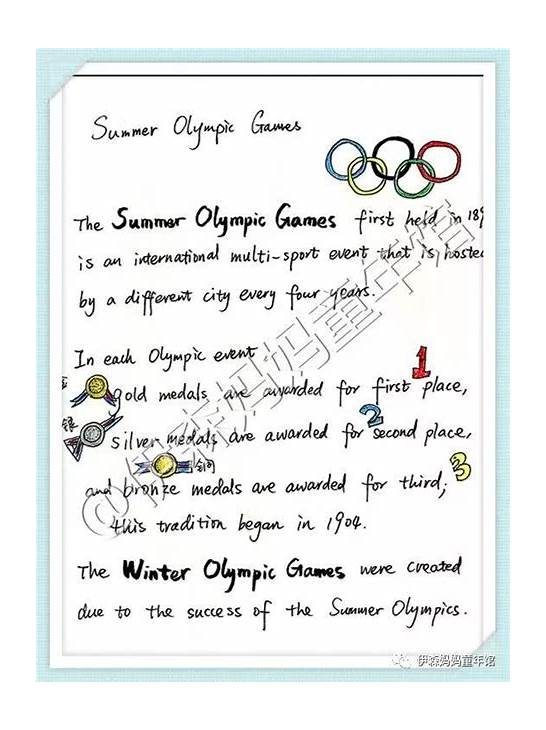 Summer Olympic Games
The Summer Olympic Games first held in 189
is an international multi-sport event that is hosted
by a different city every four years.
In each Olympic event
1
gold medals are awarded for first place,
2
银
silver medals are awarded for second place,
铜
3
and bronze medals are awarded for third;
this tradition began in 1904.
The Winter Olympic Games were created
due to the success of the Summer Olympics.
@伊森妈妈童年馆
伊森妈妈童年馆